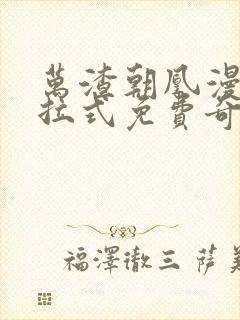 萬渣朝凰漫
拉式免費奇
福澤徹三 薩美